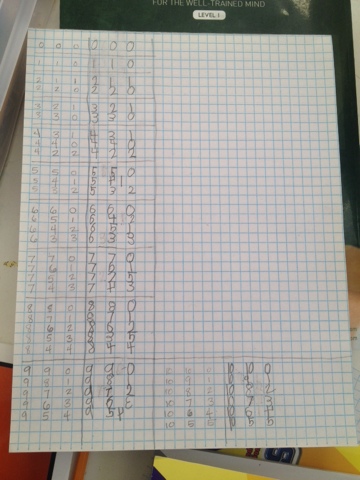 FOR THE WELL-TRAINED MIND
LEVEL 1
0 0 0 0 0 0
1 1 0 1 1 0
2 1 1 2 1 1
2 2 0 2 2 0
3 2 1 3 2 1
3 3 0 3 3 0
4 3 1 4 3 1
4 4 0 4 4 0
4 2 2 4 2 2
5 5 0 5 5 0
5 4 1 5 4 1
5 3 2 5 3 2
6 6 0 6 6 0
6 5 1 6 4 2
6 4 2 6 5 1
6 3 3 6 3 3
7 7 0 7 7 0
7 6 1 7 6 1
7 5 2 7
7 4 3 7 4 3
8 8 0 8 8 0
8 7 1 8 7 1
8 6 2 8 6 2
8 5 3 8
8 4 4 8 4 4
9 9 0 9 9 0
9 8 1 9 8 1
9 7 2 9
9 6 3 9 6
9 5 4 9 5 4
10 10 0 10 10 0
10 9 1 10 9
10 8 2 10 8 2
10 7 3 10 7 3
10 6 4 10 6 4
10 5 5 10 5 5